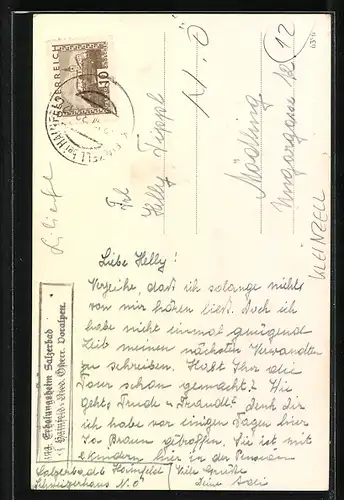 ÖSTERREICH
10
Frl.
Helly Tippl
Mödling
N.Ö
12
KLEINZELL
Liebe Helly!
Verzeihe, daß ich solange nichts
von mir hören ließ. Doch ich
habe nicht einmal genügend
Zeit meinen nächsten Verwandten
zu schreiben. Habt Ihr die
Tour schon gemacht? Wie
geht's Trude u. Traudl? denk dir
ich habe vor einigen Tagen hier
Fr. Braun getroffen. Sie ist mit
Kindern hier in der Pension
Salzerbad b Hainfeld
Schweizerhaus N.Ö
Viele Grüße
Deine
Erholungsheim Salzerbad
Hainfeld, Nied. Österr. Voralpen.